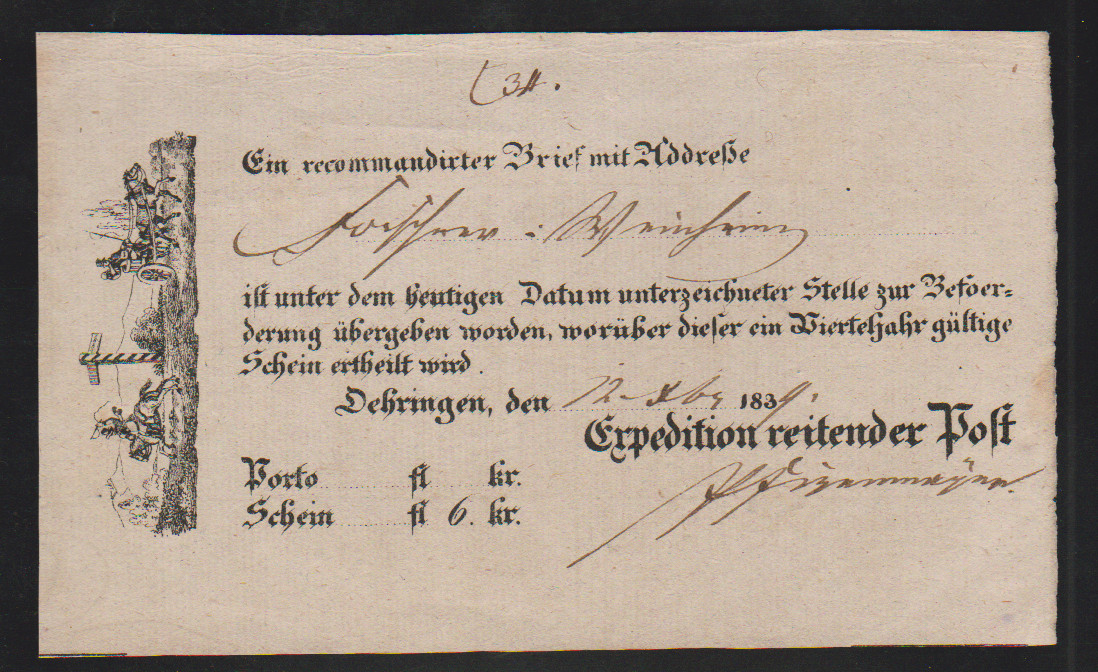 34.
Ein recommandirter Brief mit Addreße
Weinheim
ist unter dem heutigen Datum unterzeichneter Stelle zur Befoer-
derung übergeben worden, worüber dieser ein Vierteljahr gültige
Schein ertheilt wird.
Oehringen, den 12 Xbr 1839.
Expedition reitender Post
Porto fl kr.
Schein fl 6. kr.